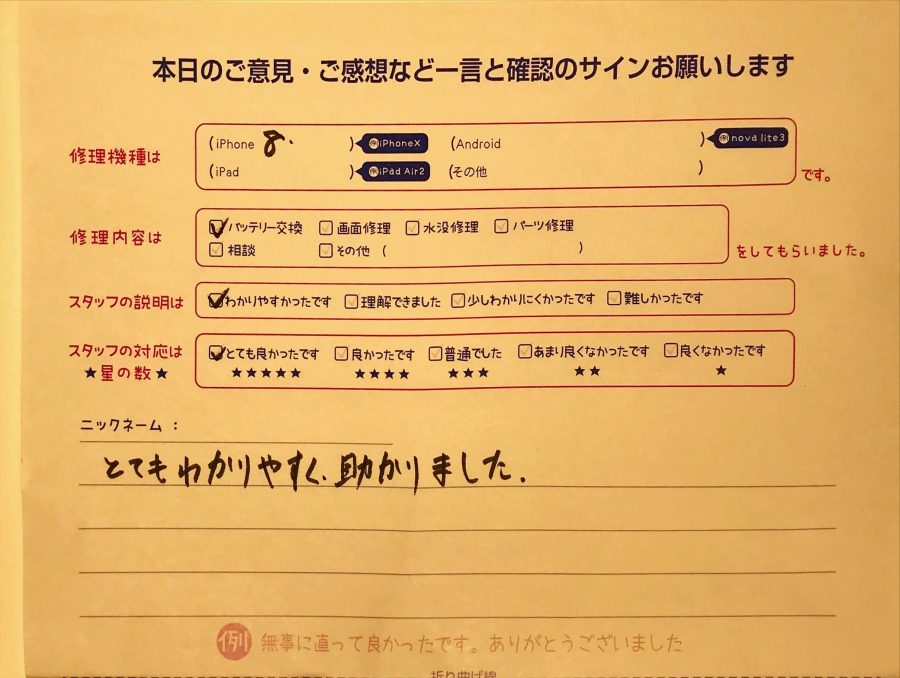 本日のご意見・ご感想など一言と確認のサインお願いします
修理機種は
(iPhone 8. ) 例iPhoneX (Android ) 例nova lite3
(iPad ) 例iPad Air2 (その他 )
です。
修理内容は
バッテリー交換 画面修理 水没修理 パーツ修理
相談 その他 ( )
をしてもらいました。
スタッフの説明は
わかりやすかったです 理解できました 少しわかりにくかったです 難しかったです
スタッフの対応は
★星の数★
とても良かったです 良かったです 普通でした あまり良くなかったです 良くなかったです
★★★★★ ★★★★ ★★★ ★★ ★
ニックネーム：
とてもわかりやすく、助かりました.
例 無事に直って良かったです。ありがとうございました
折り曲げ線